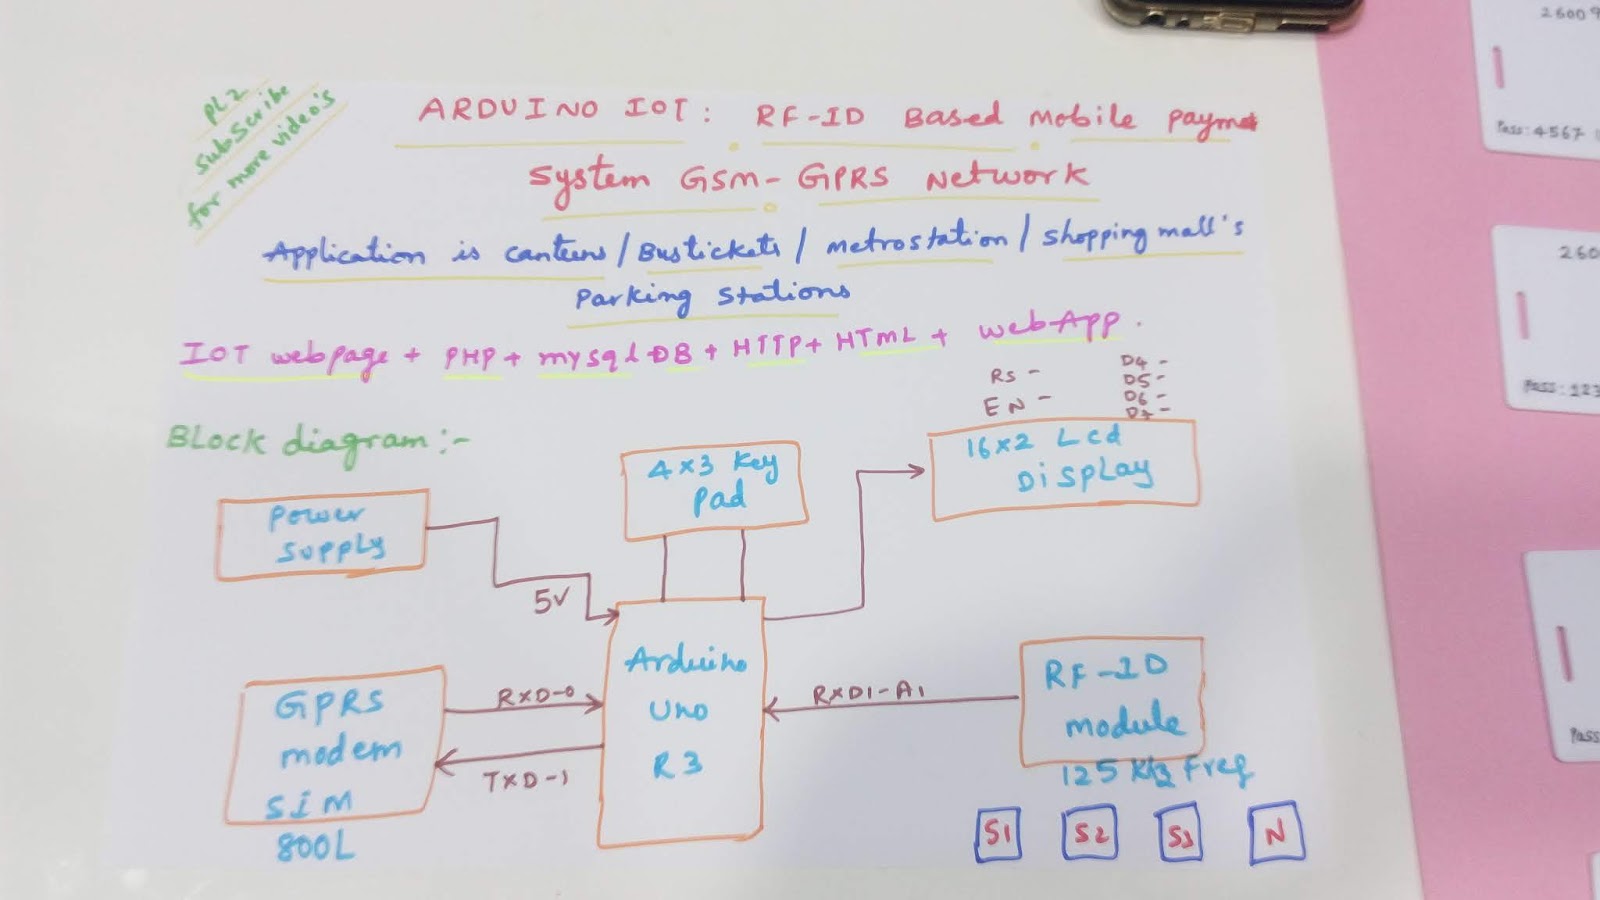 PLZ
Subscribe
for more video's
ARDUINO IOT: RF-ID Based Mobile Paymet
System GSM-GPRS Network
Application is canteens/Bustickets/Metrostation/Shopping mall's
Parking Stations
IOT webpage + PHP + mysql DB + HTTP + HTML + webApp.
RS -
EN -
D4 -
D5 -
D6 -
D7 -
Block diagram:-
16x2 Lcd
Display
4x3 Key
Pad
Power
Supply
5V
Arduino
Uno
R3
GPRS
modem
SIM
800L
RXD-0
TXD-1
RXD1-A1
RF-ID
Module
125 KHz Freq
S1
S2
S3
N
2600
Pass:4567
260
Pass:123
Pass